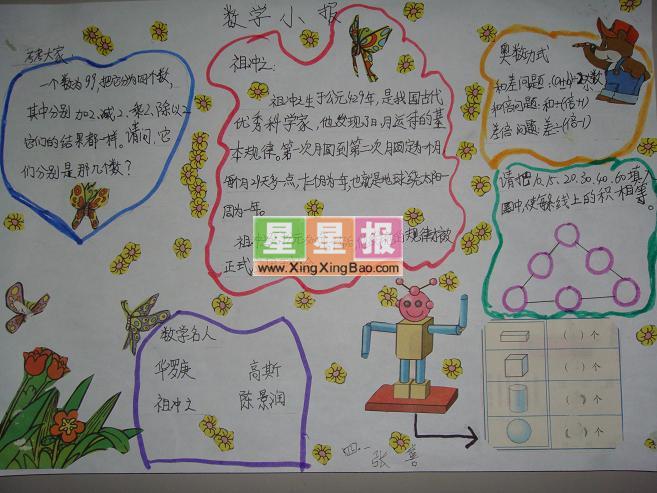 数学小报
考考大家:
一个数为99,把它分为四个数,
其中分别加2、减2、乘2、除以2
它们的结果都一样。请问,它
们分别是那几个数?
祖冲之:
祖冲之生于公元429年,是我国古代
优秀科学家,他发现了日月运行的基
本规律。第一次月圆到第一次月圆定为一个月
每个月29天多一点,
也就是地球绕太阳一
周为一年。
祖冲
规律才被
正式
奥数方式
和差问题:
和倍问题:和÷(倍+1)
差倍问题:差÷(倍-1)
请把10、15、20、30、40、60填入
圈中,使每条线上的积相等。
星星报
www.XingXingBao.com
数学名人
华罗庚 高斯
祖冲之 陈景润
( )个
( )个
( )个
( )个
四.一 张善